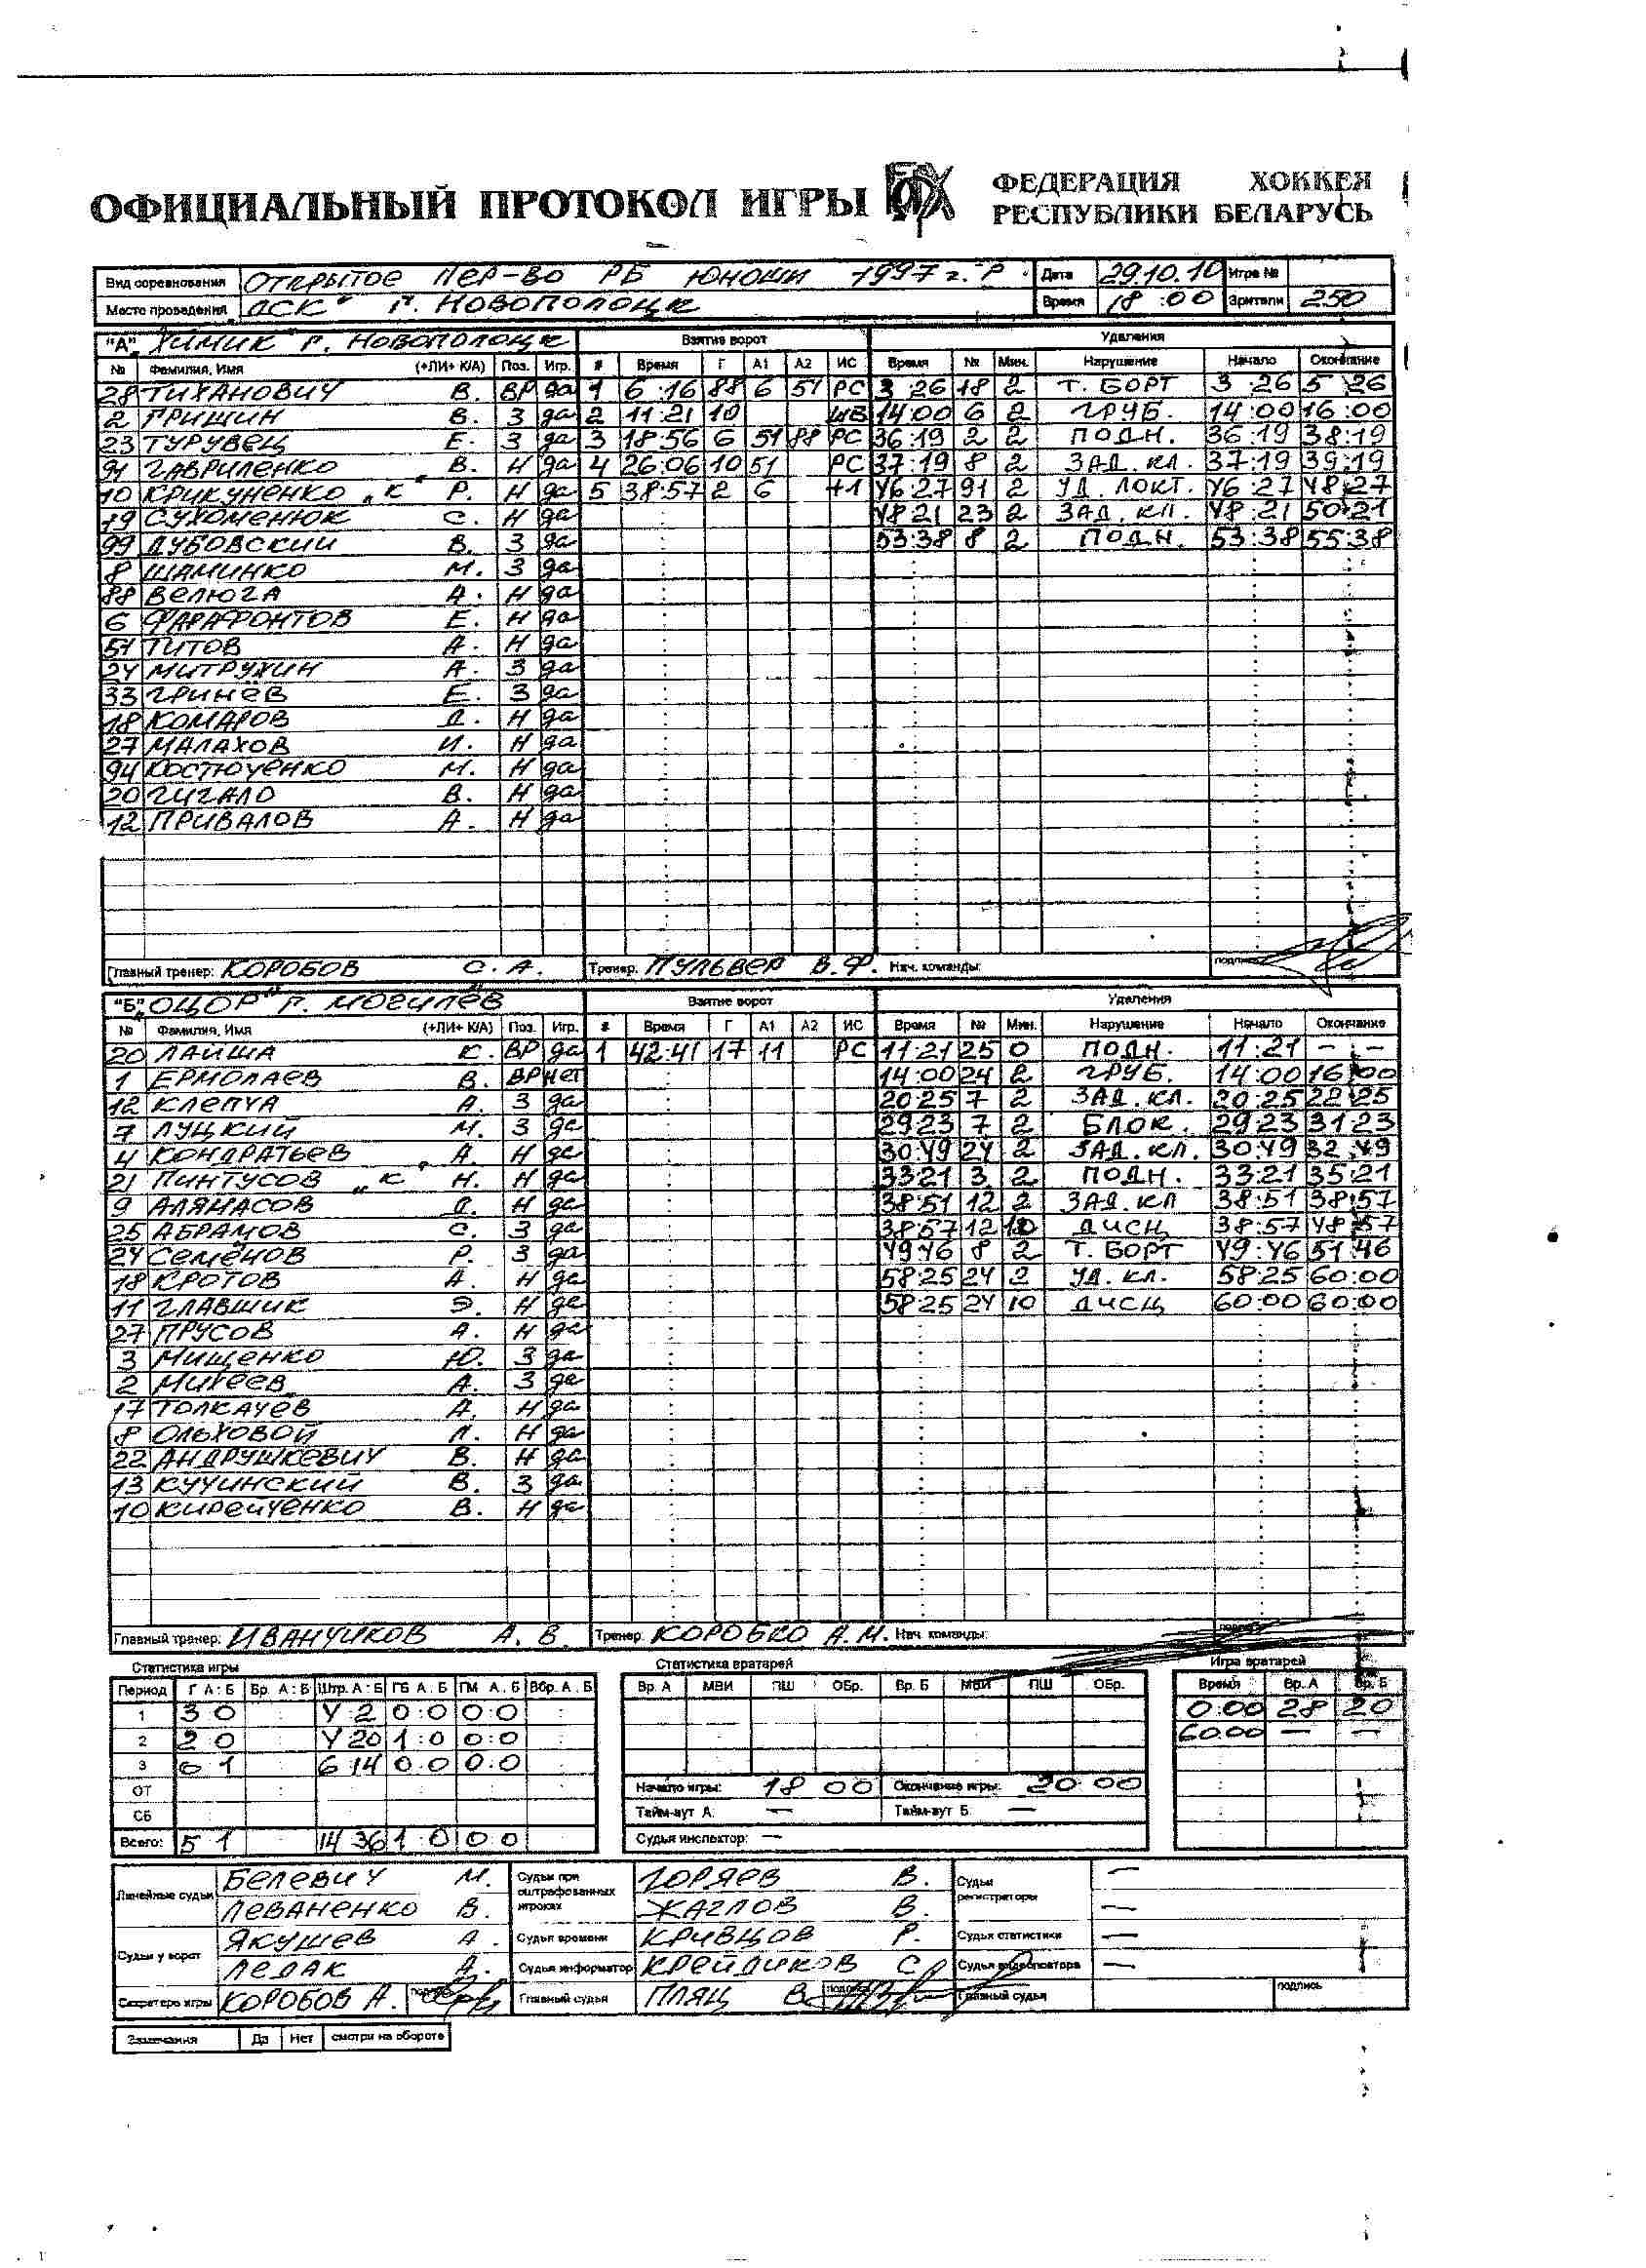 ОФИЦИАЛЬНЫЙ ПРОТОКОЛ ИГРЫ ФЕДЕРАЦИЯ ХОККЕЯ РЕСПУБЛИКИ БЕЛАРУСЬ
Вид соревнования ОТКРЫТОЕ ПЕР-ВО РБ ЮНОШИ 1997 г. Р. Дата 29.10.10 Игра №
Место проведения "ЛСК" г. НОВОПОЛОЦК Время 18:00 Зрители 250
"А" ХИМИК" г. НОВОПОЛОЦК Взятие ворот Удаления
№ Фамилия, Имя (+ЛИ+ К/А) Поз. Игр. # Время Г А1 А2 ИС Время № Мин. Нарушение Начало Окончание
28 ТИХАНОВИЧ В. ВР да 1 6:16 88 6 51 РС 3 26 18 2 Т. БОРТ 3:26 5:26
2 ГРИШИН В. З да 2 11:21 10 ШБ 14:00 6 2 ГРУБ. 14:00 16:00
23 ТУРУВЕЦ Е. З да 3 18:56 6 51 88 РС 36:19 2 2 ПОДН. 36:19 38:19
91 ГАВРИЛЕНКО В. Н да 4 26:06 10 51 РС 37:19 8 2 ЗАД. КЛ. 37:19 39:19
10 КРИКУНЕНКО "К" Р. Н да 5 38:57 2 6 +1 46:27 91 2 УД. ЛОКТ. 46:27 48:27
19 СУХОМЕНЮК С. Н да 48:21 23 2 ЗАД. КЛ. 48:21 50:21
99 ДУБОВСКИЙ В. З да 53:38 8 2 ПОДН. 53:38 55:38
8 ШАМИНКО М. З да
88 ВЕЛЮГА А. Н да
6 ФАРАФОНТОВ Е. Н да
51 ТИТОВ А. Н да
24 МИТРУХИН А. З да
33 ГРИНЁВ Е. З да
18 КОМАРОВ Д. Н да
27 МАЛАХОВ И. Н да
94 КОСТЮЧЕНКО М. Н да
20 ГИГАЛО В. Н да
12 ПРИВАЛОВ А. Н да
Главный тренер: КОРОБОВ С. А. Тренер: ПУЛЬВЕР В.Ф. Нач. команды: подпись
"Б" ОЦОР" г. МОГИЛЁВ Взятие ворот Удаления
№ Фамилия, Имя (+ЛИ+ К/А) Поз. Игр. # Время Г А1 А2 ИС Время № Мин. Нарушение Начало Окончание
20 ЛАЙША К. ВР да 1 42:41 17 11 РС 11:21 25 0 ПОДН. 11:21 — : —
1 ЕРМОЛАЕВ В. ВР нет 14:00 24 2 ГРУБ. 14:00 16:00
12 КЛЕПЧА А. З да 20:25 7 2 ЗАД. КЛ. 20:25 22:25
7 ЛУЦКИЙ М. З да 29:23 7 2 БЛОК. 29:23 31:23
4 КОНДРАТЬЕВ А. Н да 30:49 24 2 ЗАД. КЛ. 30:49 32:49
21 ПИНТУСОВ "К" Н. Н да 33:21 3 2 ПОДН. 33:21 35:21
9 АЛЯМАСОВ Д. Н да 38:51 12 2 ЗАД. КЛ 38:51 38:57
25 АБРАМОВ С. З да 38:57 12 10 ДИСЦ 38:57 48:57
24 СЕМЁНОВ Р. З да 49:46 8 2 Т. БОРТ 49:46 51:46
18 КРОТОВ А. Н да 58:25 24 2 УД. КЛ. 58:25 60:00
11 ГЛАВШИК Э. Н да 58:25 24 10 ДИСЦ 60:00 60:00
27 ПРУСОВ А. Н да
3 МИЩЕНКО Ю. З да
2 МИХЕЕВ А. З да
17 ТОЛКАЧЕВ А. Н да
8 ОЛЬХОВОЙ Л. Н да
22 АНДРУШКЕВИЧ В. Н да
13 КУЧИНСКИЙ В. З да
10 КИРЕЙЧЕНКО В. Н да
Главный тренер: ИВАНЧИКОВ А. В. Тренер: КОРОБКО А.М. Нач. команды: подпись
Статистика игры Статистика вратарей Игра вратарей
Период Г А:Б Бр. А:Б Штр. А:Б ГБ А:Б ГМ А:Б Вбр. А:Б Вр. А МВИ ПШ ОБр. Вр. Б МВИ ПШ ОБр. Время Вр. А Вр. Б
1 3 0 4 2 0:0 0:0 0:00 28 20
2 2 0 4 20 1:0 0:0 60:00 — —
3 0 1 6 14 0:0 0:0
ОТ Начало игры: 18 00 Окончание игры: 20 00
СБ Тайм-аут А: — Тайм-аут Б: —
Всего: 5 1 14 36 1:0 0:0 Судья инспектор: —
Линейные судьи БЕЛЕВИЧ М. Судьи при оштрафованных игроках ГОРЯЕВ В. Судьи регистраторы —
ЛЕВАНЕНКО В. ЖАГЛОВ В. —
Судьи у ворот ЯКУШЕВ А. Судья времени КРИВЦОВ Р. Судья статистики —
ЛЕДАК А. Судья информатор КРЕЙДИКОВ С. Судья видеоповтора —
Секретарь игры КОРОБОВ А. подпись Главный судья ПЛЯЦ В. подпись Главный судья подпись
Замечания Да Нет смотри на обороте